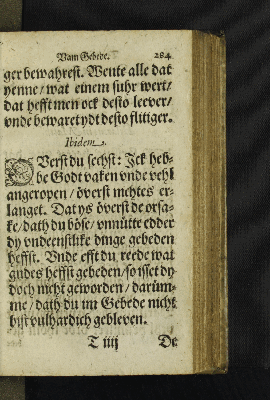 Vam Gebede. 284
ger bewahrest. Wente alle dat
yenne / wat einem suhr wert /
dat hefft men ock desto leever /
vnde bewaret ydt desto flitiger.
Ibidem.
OVerst du sechst: Ick heb-
be Godt vaken vnde vehl
angeropen / överst nichtes er-
langet. Dat ys överst de orsa-
ke / dath du böse / vnnütte edder
dy vndeenstlike dinge gebeden
heffst. Vnde efft du reede wat
gudes heffst gebeden / so isset dy
doch nicht geworden / darüm-
me / dath du im Gebede nicht
bist vulhardich gebleven.
T iiij De